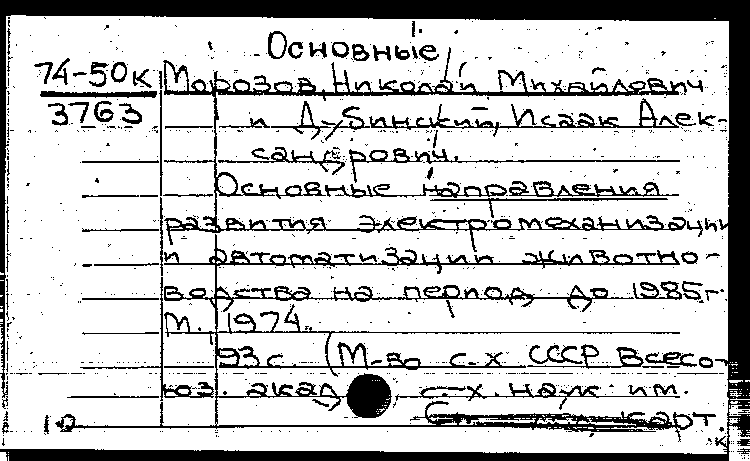 Основные
74-50к Морозов, Николай Михайлович
3763 и Дубинский, Исаак Алек-
сандрович.
Основные направления
развития электромеханизации
и автоматизации животно-
водства на период до 1985г.
М., 1974.
93с (М-во с.-х СССР Всесо-
юз. акад с-х. наук им.
карт.
к